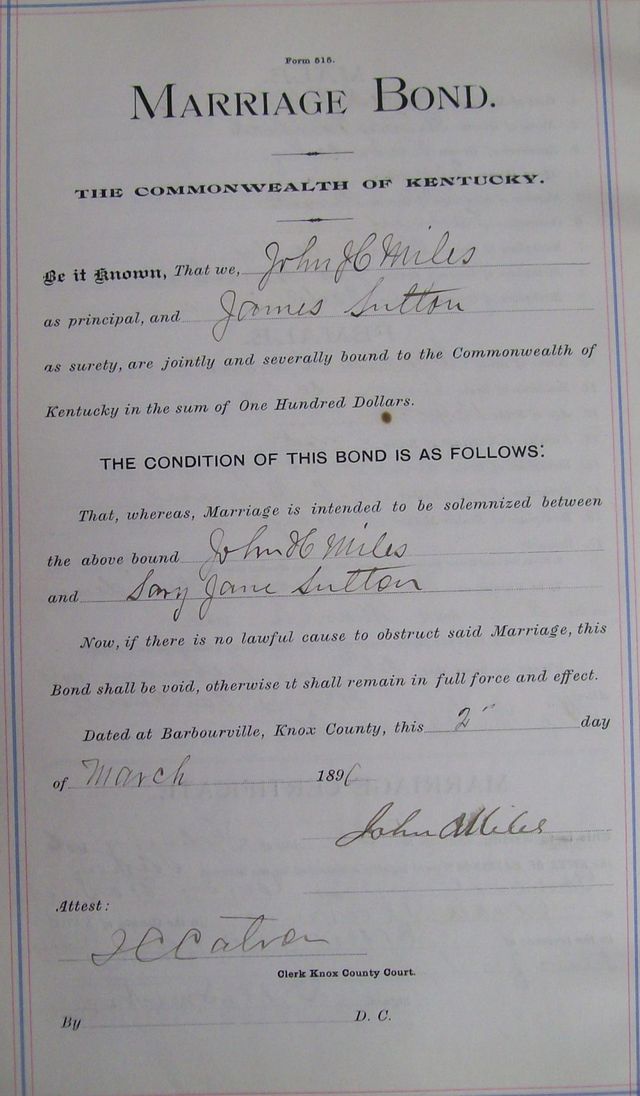 Form 515.
MARRIAGE BOND.
THE COMMONWEALTH OF KENTUCKY.
Be it Known, That we, John H Miles
as principal, and James Sutton
as surety, are jointly and severally bound to the Commonwealth of
Kentucky in the sum of One Hundred Dollars.
THE CONDITION OF THIS BOND IS AS FOLLOWS:
That, whereas, Marriage is intended to be solemnized between
the above bound John H Miles
and Sary Jane Sutton
Now, if there is no lawful cause to obstruct said Marriage, this
Bond shall be void, otherwise it shall remain in full force and effect.
Dated at Barbourville, Knox County, this 2" day
of March 1896
John Miles
Attest:
Clerk Knox County Court.
By D. C.